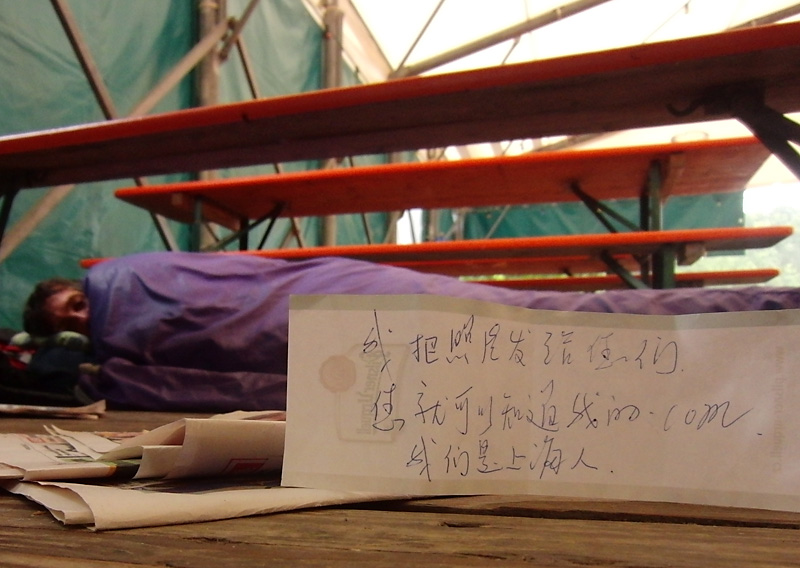 我把照片发给您们.
您就可以知道我的.com.
我们是上海人.